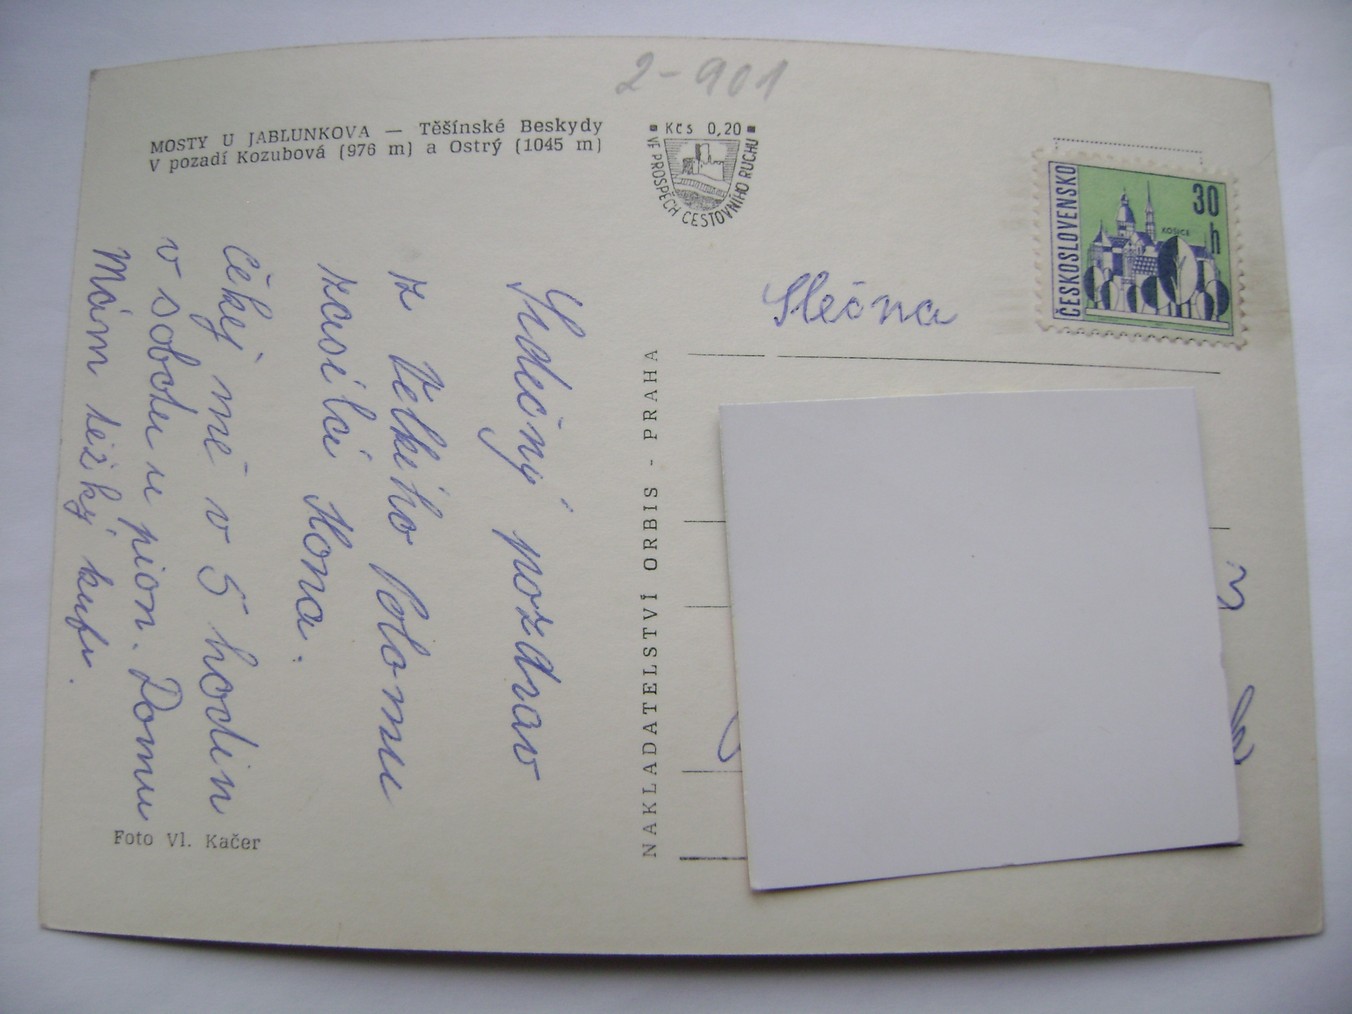 2-901
MOSTY U JABLUNKOVA — Těšínské Beskydy
V pozadí Kozubová (976 m) a Ostrý (1045 m)
Kčs 0,20
VE PROSPĚCH CESTOVNÍHO RUCHU
ČESKOSLOVENSKO
30
h
KOŠICE
Slečna
Srdečný pozdrav
z Velkého Polomu
zasílá Hona.
čekej mě v 5 hodin
v sobotu u pion. Domu
Mám těžký kufr.
NAKLADATELSTVÍ ORBIS - PRAHA
Foto Vl. Kačer